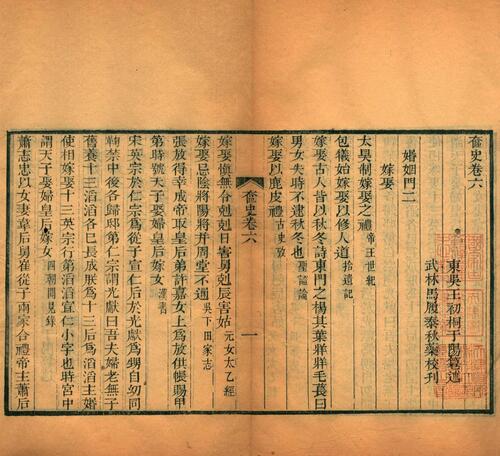 奩史卷六
東吳王初桐于陽纂述
武林馬履泰秋藥校刊
婚姻門二
嫁娶
太昊制嫁娶之禮帝王世紀
包犧始嫁娶以修人道拾遺記
嫁娶古人皆以秋冬詩東門之楊其葉牂牂毛萇曰
男女失時不逮秋冬也聖證論
嫁娶以鹿皮禮古史攷
嫁娶慎無合剋剋日害男剋辰害姑元女太乙經
嫁娶忌陰將陽將并周堂不通吳下田家志
張放得幸成帝取皇后弟許嘉女上爲放供帳賜甲
第時號天子娶婦皇后嫁女漢書
宋英宗於仁宗爲從子宣仁后於光獻爲甥自幼同
鞠禁中後各歸邸第仁宗謂光獻曰吾夫婦老無子
舊養十三滔滔各已長成朕爲十三后爲滔滔主婚
使相嫁娶十三英宗行第滔滔宣仁小字也時宮中
謂天子娶婦皇后嫁女四朝聞見錄
蕭志忠以女妻韋后舅崔從子兩家合禮帝主蕭后
奩史卷六
一